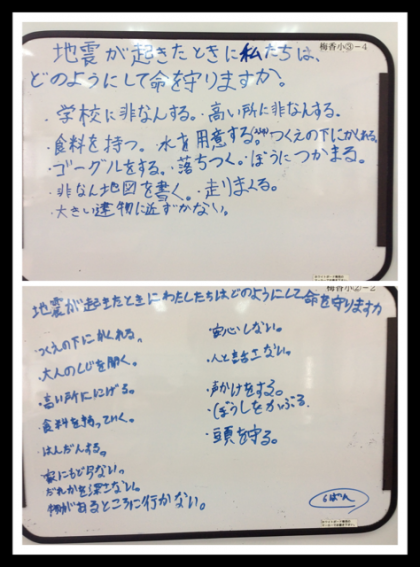 梅香小③-4
地震が起きたときに私たちは、
どのようにして命を守りますか。
・学校に非なんする。・高い所に非なんする。
・食料を持つ。・水を用意する。・つくえの下にかくれる。
・ゴーグルをする。・落ちつく。・ぼうにつかまる。
・非なん地図を書く。・走りまくる。
・大きい建物に近ずかない。
梅香小②-2
地震が起きたときにわたしたちはどのようにして命を守りますか
・つくえの下にかくれる。
・大人のしじを聞く。
・高い所ににげる。
・食料を持っていく。
・はんだんする。
・家にもどらない。
・だれかを探さない。
・物があるところに行かない。
・安心しない。
・人と話さない。
・声かけをする。
・ぼうしをかぶる。
・頭を守る。
6ぱん